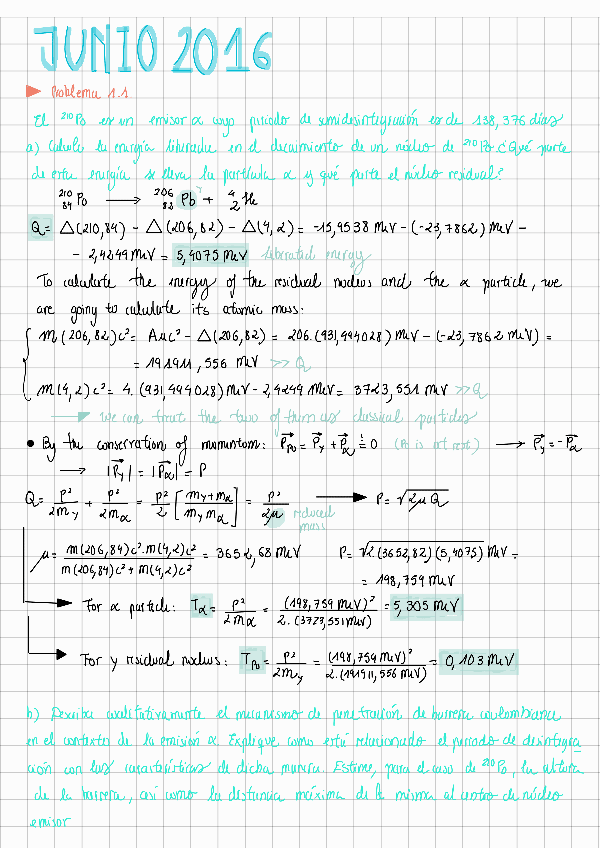 JUNIO 2016
▶ Problema 1.1
El ²¹⁰Po es un emisor α cuyo periodo de semidesintegración es de 138,376 días
a) Calcule la energía liberada en el decaimiento de un núcleo de ²¹⁰Po ¿Qué parte
de esta energía se lleva la partícula α y qué parte el núcleo residual?
²¹⁰₈₄Po → ²⁰⁶₈₂Pb + ⁴₂He
Q = Δ(210,84) - Δ(206,82) - Δ(4,2) = -15,9538 MeV - (-23,7862) MeV -
- 2,4249 MeV = 5,4075 MeV liberated energy
To calculate the energy of the residual nucleus and the α particle, we
are going to calculate its atomic mass:
m(206,82)c² = Auc² - Δ(206,82) = 206·(931,494028) MeV - (-23,7862 MeV) =
= 191911,556 MeV >> Q
m(4,2)c² = 4·(931,494028) MeV - 2,4249 MeV = 3723,551 MeV >> Q
→ We can treat the two of them as classical particles
• By the conservation of momentum: P⃗Po = P⃗y + P⃗α = 0 (Po is at rest) → P⃗y = -P⃗α
→ |P⃗y| = |P⃗α| = P
Q = P²/2my + P²/2mα = P²/2 [my + mα / my mα] = P²/2μ → P = √2μQ
reduced
mass
μ = m(206,84)c²·m(4,2)c² / m(206,84)c² + m(4,2)c² = 3652,68 MeV P = √2(3652,82)(5,4075) MeV =
= 198,759 MeV
→ For α particle: Tα = P²/2mα = (198,759 MeV)²/2·(3723,551 MeV) = 5,305 MeV
→ For y residual nucleus: TPo = P²/2my = (198,759 MeV)²/2·(191911,556 MeV) = 0,103 MeV
b) Describa cualitativamente el mecanismo de penetración de barrera coulombiana
en el contexto de la emisión α. Explique como está relacionado el periodo de desintegra
ción con las características de dicha barrera. Estime, para el caso de ²¹⁰Po, la altura
de la barrera, así como la distancia máxima de la misma al centro de núcleo
emisor